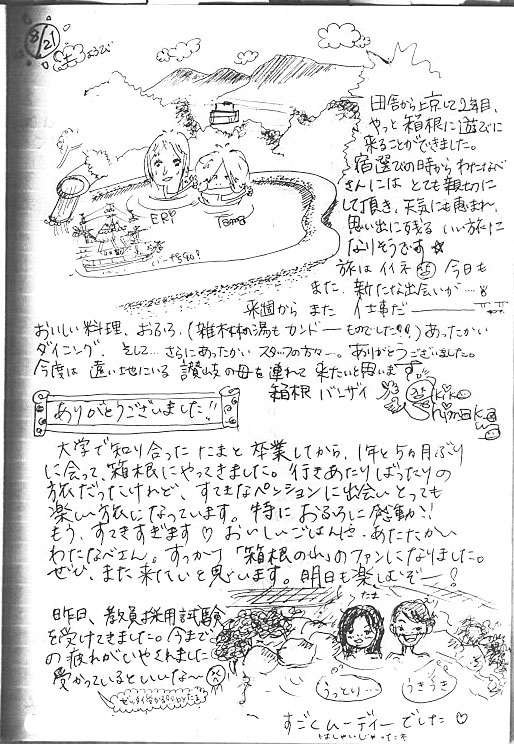 8/21
田舎から上京して2年目、
やっと箱根に遊びに
来ることができました。
宿選びの時からわたなべ
さんには とても親切に
して頂き、天気にも恵まれ、
思い出に残る いい旅に
なりそうです☆
旅は イイネ 今日も
また 新たな出会いが…
来週から また 仕事だ
ERP Tama
おいしい料理、おふろ、(雑木林の湯もカンドーものでした!!) あったかい
ダイニング、そして… さらにあったかい スタッフの方々…。ありがとうございました。
今度は 遠い地にいる 讃岐の母を連れて 来たいと思います
箱根 バンザイ
ありがとうございました!!
大学で知り合った たまと 卒業してから、1年と5ヵ月ぶり
に会って、箱根にやってきました。行きあたりばったりの
旅だったけれど、すてきなペンションに出会い とっても
楽しい旅になっています。特に おふろに感動!!
もう、すてきすぎます♡ おいしいごはんに、あたたかい
わたなべさん。すっかり「箱根の山」のファンになりました。
ぜひ、また来たいと思います。明日も楽しむぞー!
昨日、教員採用試験
を受けてきました。今まで
の疲れがいやされました
受かっているといいな〜
たま
うっとり…
うきうき
すごくムーディーでした♡
はしゃいじゃったネ